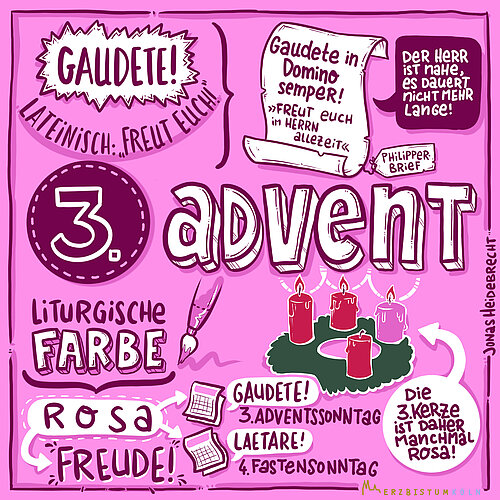 GAUDETE!
LATEINISCH: „FREUT EUCH!“
Gaudete in
Domino
semper!
»FREUT EUCH
im HERRN
ALLEZEIT«
PHILIPPER-
BRIEF
DER HERR
IST NAHE,
ES DAUERT
NICHT MEHR
LANGE!
3. advent
LITURGISCHE
FARBE
ROSA
"FREUDE!"
GAUDETE!
3. ADVENTSSONNTAG
LAETARE!
4. FASTENSONNTAG
Die
3. KERZE
IST DAHER
MANCHMAL
ROSA!
JONAS HEIDEBRECHT
ERZBISTUMKÖLN